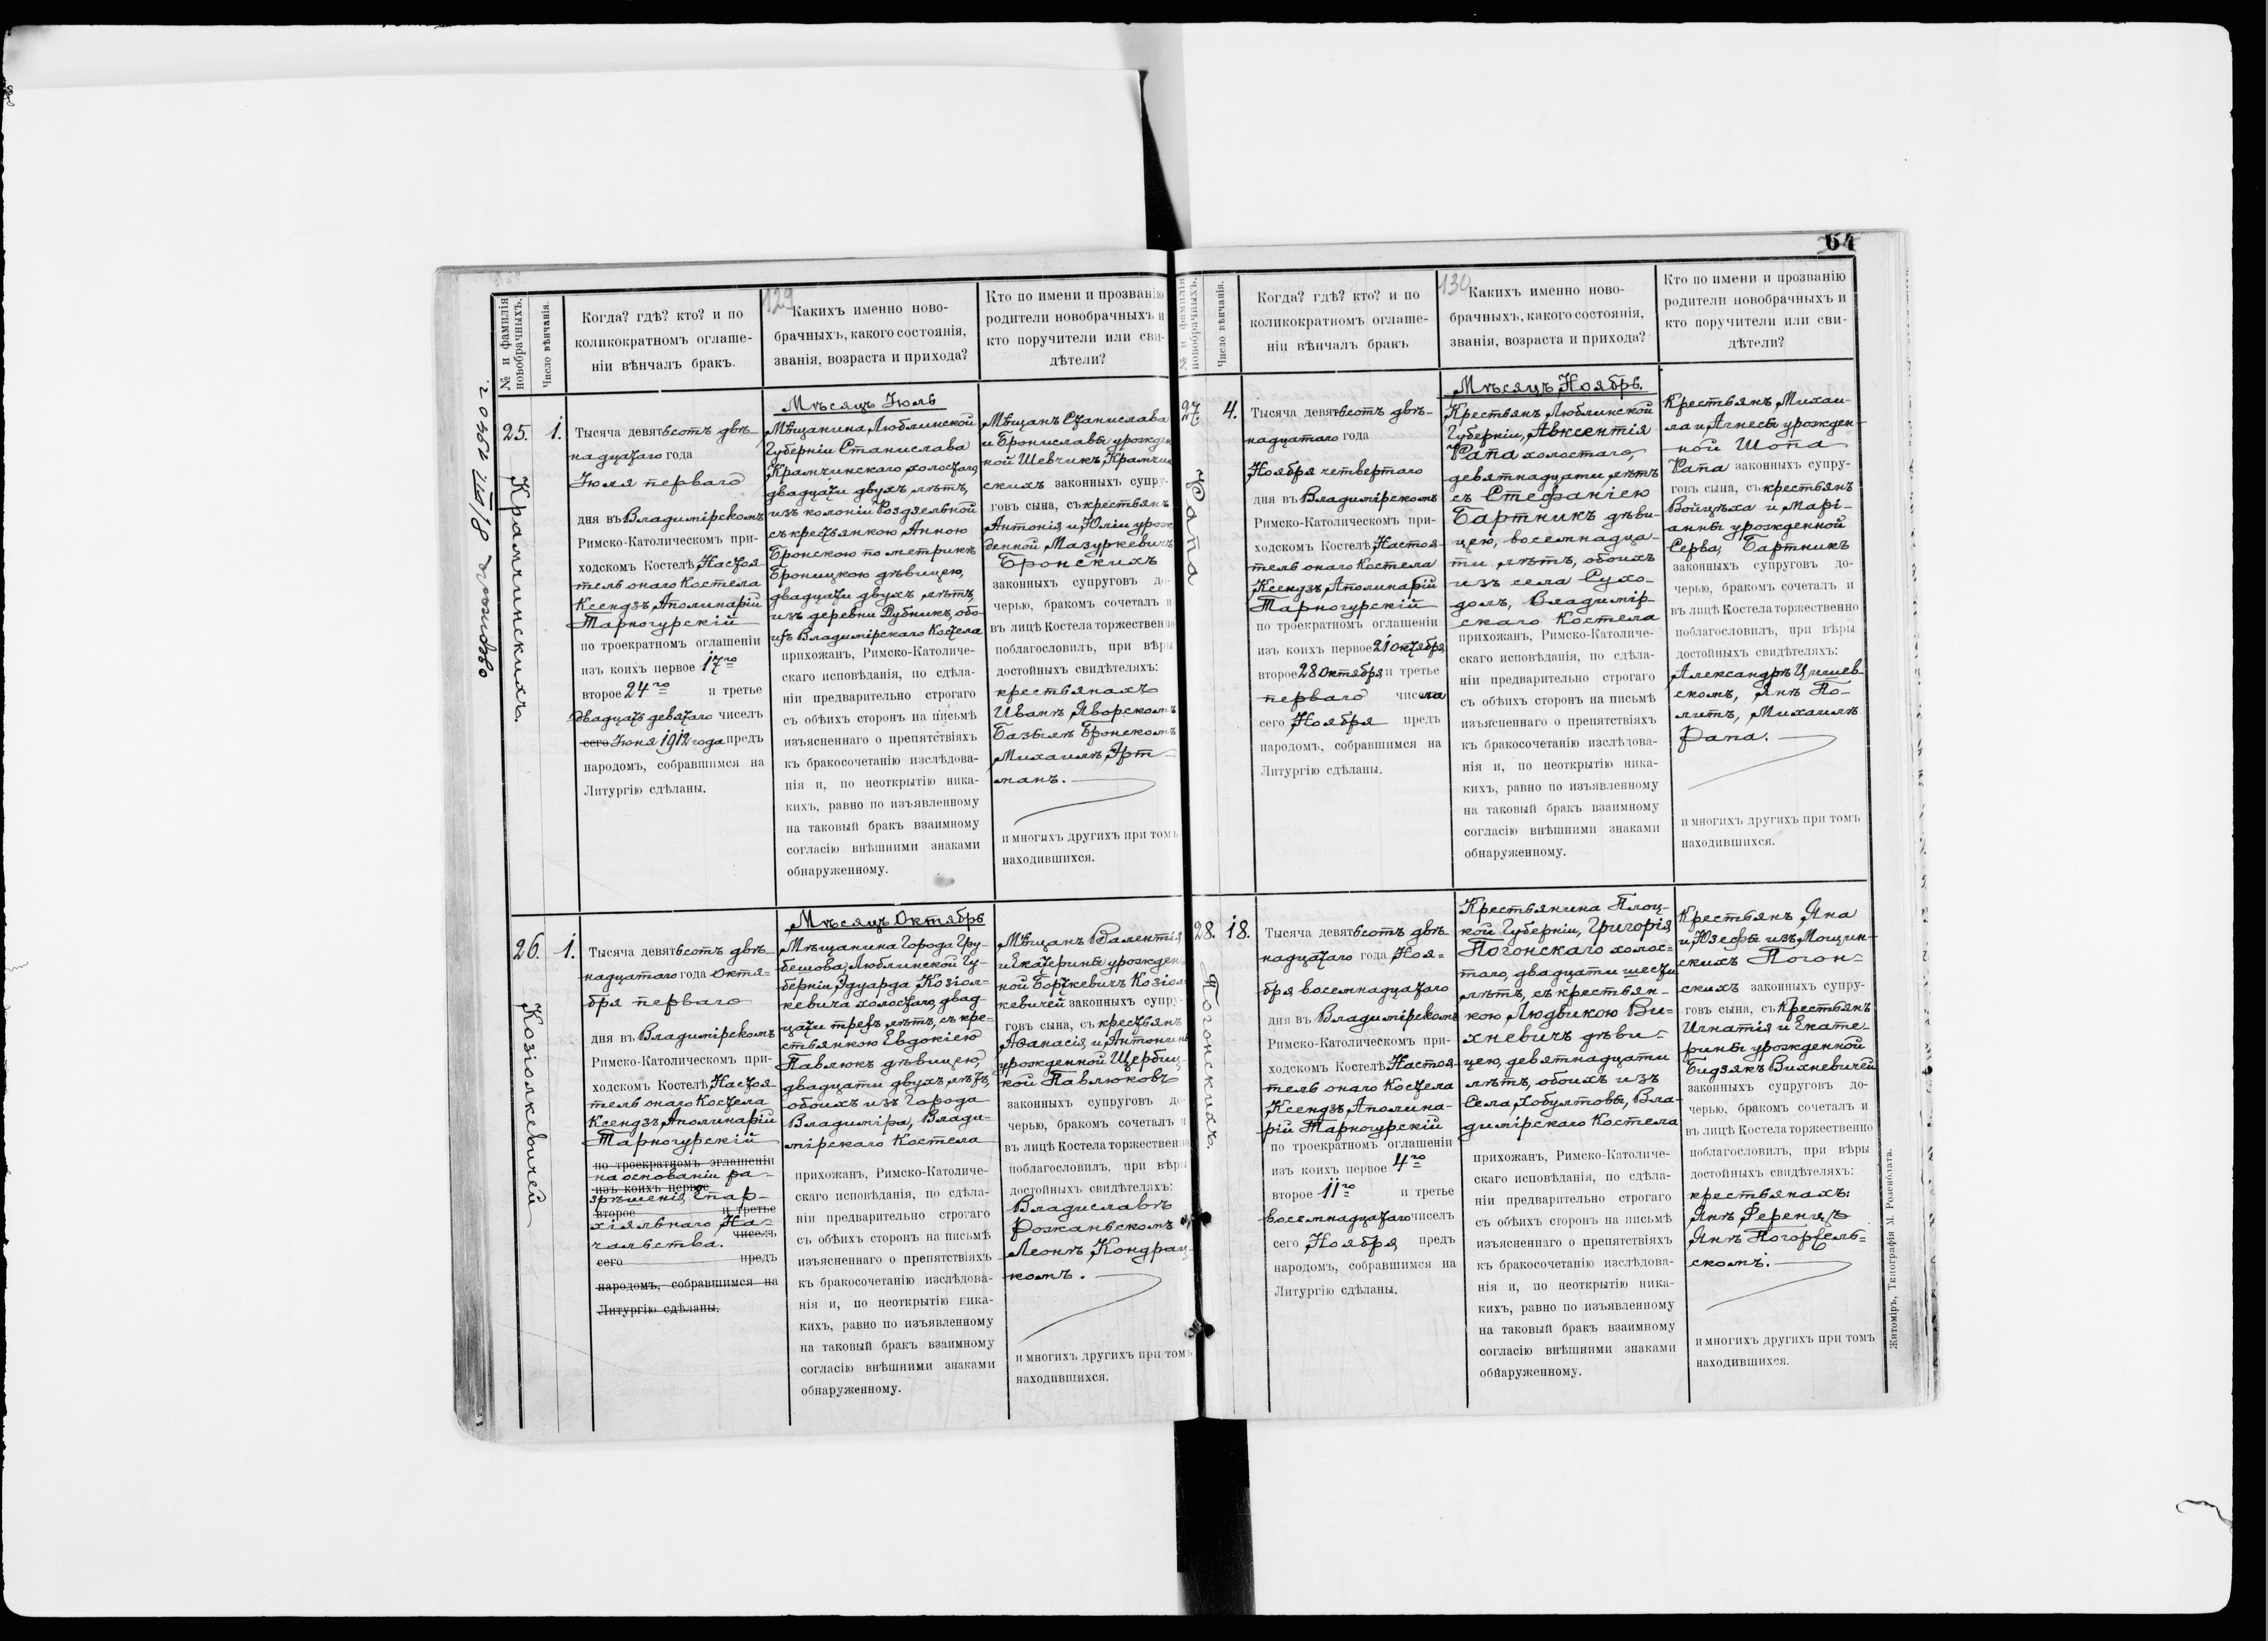 64
129
№ и фамилія новобрачныхъ.
Число вѣнчанія.
Когда? гдѣ? кто? и по
коликократномъ оглаше-
ніи вѣнчалъ бракъ.
Какихъ именно ново-
брачныхъ, какого состоянія,
званія, возраста и прихода?
Кто по имени и прозванію
родители новобрачныхъ и
кто поручители или сви-
дѣтели?
25.
1.
Крамчинскихъ.
Тысяча девятьсотъ двѣ-
надцатаго года
Іюля перваго
дня въ Владимірскомъ
Римско-Католическомъ при-
ходскомъ Костелѣ Настоя-
тель онаго Костела
Ксендзъ Аполинарій
Тарногурскій
по троекратномъ оглашеніи
изъ коихъ первое 17го
второе 24го и третье
двадцать девятаго чиселъ
сего Іюня 1912 года предъ
народомъ, собравшимся на
Литургію сдѣланы.
Мѣсяцъ Іюль
Мѣщанина Люблинской
Губерніи Станислава
Крамчинскаго, холостаго,
двадцати двухъ лѣтъ,
изъ колоніи Роздзельной
съ крестьянкою Анною
Бронскою по метрикѣ
Броницкою дѣвицею,
двадцати двухъ лѣтъ,
изъ деревни Дубникъ, обо-
ихъ Владимірскаго Костела
прихожанъ, Римско-Католиче-
скаго исповѣданія, по сдѣла-
ніи предварительно строгаго
съ обѣихъ сторонъ на письмѣ
изъясненнаго о препятствіяхъ
къ бракосочетанію изслѣдова-
нія и, по неоткрытію ника-
кихъ, равно по изъявленному
на таковый бракъ взаимному
согласію внѣшними знаками
обнаруженному.
Мѣщанъ Станислава
и Брониславы урожден
ной Шевчикъ, Крамчин
скихъ законныхъ супру-
говъ сына, съ крестьянъ
Антонія и Юліи урож
денной Мазуркевичъ
Бронскихъ
законныхъ супруговъ до-
черью, бракомъ сочеталъ и
въ лицѣ Костела торжественно
поблагословилъ, при вѣры
достойныхъ свидѣтеляхъ:
крестьянахъ
Иванѣ Яворскомъ
Базылѣ Бронскомъ
Михаилѣ Арт-
манъ.
и многихъ другихъ при томъ
находившихся.
26.
1.
Козіолкевичей
Тысяча девятьсотъ двѣ-
надцатаго года Октя=
бря перваго
дня въ Владимірскомъ
Римско-Католическомъ при-
ходскомъ Костелѣ Настоя-
тель онаго Костела
Ксендзъ Аполинарій
Тарногурскій
по троекратномъ оглашеніи
на основаніи ра-
изъ коихъ первое
зрѣшенія Епар-
второе и третье
хіяльнаго На-
чиселъ
чальства.
сего предъ
народомъ, собравшимся на
Литургію сдѣланы.
Мѣсяцъ Октябрь
Мѣщанина Города Гру-
бешова, Люблинской Гу-
берніи Эдуарда Козіол-
кевича холостаго, двад-
цати трехъ лѣтъ, съ кре-
стьянкою Евдокіею
Павлюкъ дѣвицею,
двадцати двухъ лѣтъ,
обоихъ изъ Города
Владиміра, Влади-
мірскаго Костела
прихожанъ, Римско-Католиче-
скаго исповѣданія, по сдѣла-
ніи предварительно строгаго
съ обѣихъ сторонъ на письмѣ
изъясненнаго о препятствіяхъ
къ бракосочетанію изслѣдова-
нія и, по неоткрытію ника-
кихъ, равно по изъявленному
на таковый бракъ взаимному
согласію внѣшними знаками
обнаруженному.
Мѣщанъ Валентія
и Екатерины урожден-
ной Борткевичъ Козіол
кевичей законныхъ супру-
говъ сына, съ крестьянъ
Афанасія и Антонины
урожденной Щербиц-
кой Павлюковъ
законныхъ супруговъ до-
черью, бракомъ сочеталъ и
въ лицѣ Костела торжественно
поблагословилъ, при вѣры
достойныхъ свидѣтеляхъ:
Владиславѣ
Рожаньскомъ
Леонѣ Кондрац-
комъ.
и многихъ другихъ при томъ
находившихся.
130
№ и фамилія новобрачныхъ.
Число вѣнчанія.
Когда? гдѣ? кто? и по
коликократномъ оглаше-
ніи вѣнчалъ бракъ
Какихъ именно ново-
брачныхъ, какого состоянія,
званія, возраста и прихода?
Кто по имени и прозванію
родители новобрачныхъ и
кто поручители или сви-
дѣтели?
27
4.
Рапа
Тысяча девятьсотъ двѣ-
надцатаго года
Ноября четвертаго
дня въ Владимірскомъ
Римско-Католическомъ при-
ходскомъ Костелѣ Настоя-
тель онаго Костела
Ксендзъ Аполинарій
Тарногурскій
по троекратномъ оглашеніи
изъ коихъ первое 21 октября
второе 28 октября и третье
перваго числа
сего Ноября предъ
народомъ, собравшимся на
Литургію сдѣланы.
Мѣсяцъ Ноябрь.
Крестьянъ Люблинской
Губерніи, Авксентія
Рапа холостаго,
девятнадцати лѣтъ
съ Стефаніею
Бартникъ дѣви-
цею, восемнадца-
ти лѣтъ, обоихъ
изъ села Сухо-
долъ, Владимір-
скаго Костела
прихожанъ, Римско-Католиче-
скаго исповѣданія, по сдѣла-
ніи предварительно строгаго
съ обѣихъ сторонъ на письмѣ
изъясненнаго о препятствіяхъ
къ бракосочетанію изслѣдова-
нія и, по неоткрытію ника-
кихъ, равно по изъявленному
на таковый бракъ взаимному
согласію внѣшними знаками
обнаруженному.
Крестьянъ Михаи-
ла и Агнесы урожден-
ной Шопа
Рапа законныхъ супру-
говъ сына, съ крестьянъ
Войцѣха и Марі-
анны урожденной
Серва, Бартникъ
законныхъ супруговъ до-
черью, бракомъ сочеталъ и
въ лицѣ Костела торжественно
поблагословилъ, при вѣры
достойныхъ свидѣтеляхъ:
Александрѣ Цишев-
скомъ, Янѣ По-
литъ, Михаилѣ
Рапа.
и многихъ другихъ при томъ
находившихся.
28.
18.
Погонскихъ.
Тысяча девятьсотъ двѣ-
надцатаго года Ноя=
бря восемнадцатаго
дня въ Владимірскомъ
Римско-Католическомъ при-
ходскомъ Костелѣ Настоя-
тель онаго Костела
Ксендзъ Аполина-
рій Тарногурскій
по троекратномъ оглашеніи
изъ коихъ первое 4го
второе 11го и третье
восемнадцатаго чиселъ
сего Ноября предъ
народомъ, собравшимся на
Литургію сдѣланы.
Крестьянина Плоц-
кой Губерніи, Григорія
Погонскаго холос=
таго, двадцати шести
лѣтъ, съ крестьян-
кою Людвикою Ви=
хневичъ дѣви=
цею, девятнадцати
лѣтъ, обоихъ изъ
Села Хобултовы, Вла-
димірскаго Костела
прихожанъ, Римско-Католиче-
скаго исповѣданія, по сдѣла-
ніи предварительно строгаго
съ обѣихъ сторонъ на письмѣ
изъясненнаго о препятствіяхъ
къ бракосочетанію изслѣдова-
нія и, по неоткрытію ника-
кихъ, равно по изъявленному
на таковый бракъ взаимному
согласію внѣшними знаками
обнаруженному.
Крестьянъ Яна
и Юзефы изъ Мощин-
скихъ Погон=
скихъ законныхъ супру-
говъ сына, съ Крестьянъ
Игнатія и Екате-
рины урожденной
Бидзякъ Вихневичей
законныхъ супруговъ до-
черью, бракомъ сочеталъ и
въ лицѣ Костела торжественно
поблагословилъ, при вѣры
достойныхъ свидѣтеляхъ:
крестьянахъ:
Янѣ Ференцъ
Янѣ Погоржель=
скомъ.
и многихъ другихъ при томъ
находившихся.
Житоміръ, Типографія М. Розенблата.